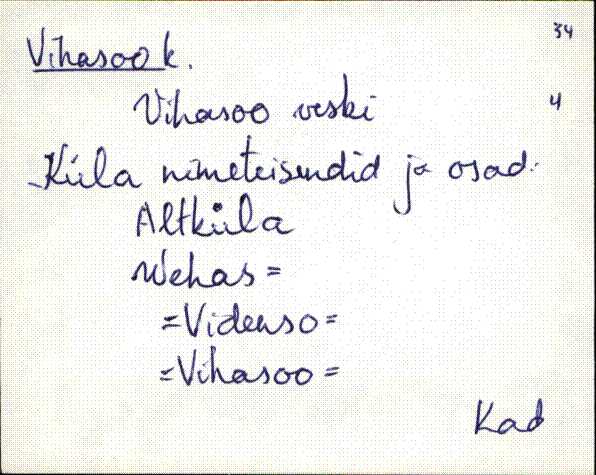 34
Vihasoo k.
Vihasoo veski
4
Küla nimeteisendid ja osad.
Altküla
Wehas=
=Videnso=
=Vihasoo=
Kad